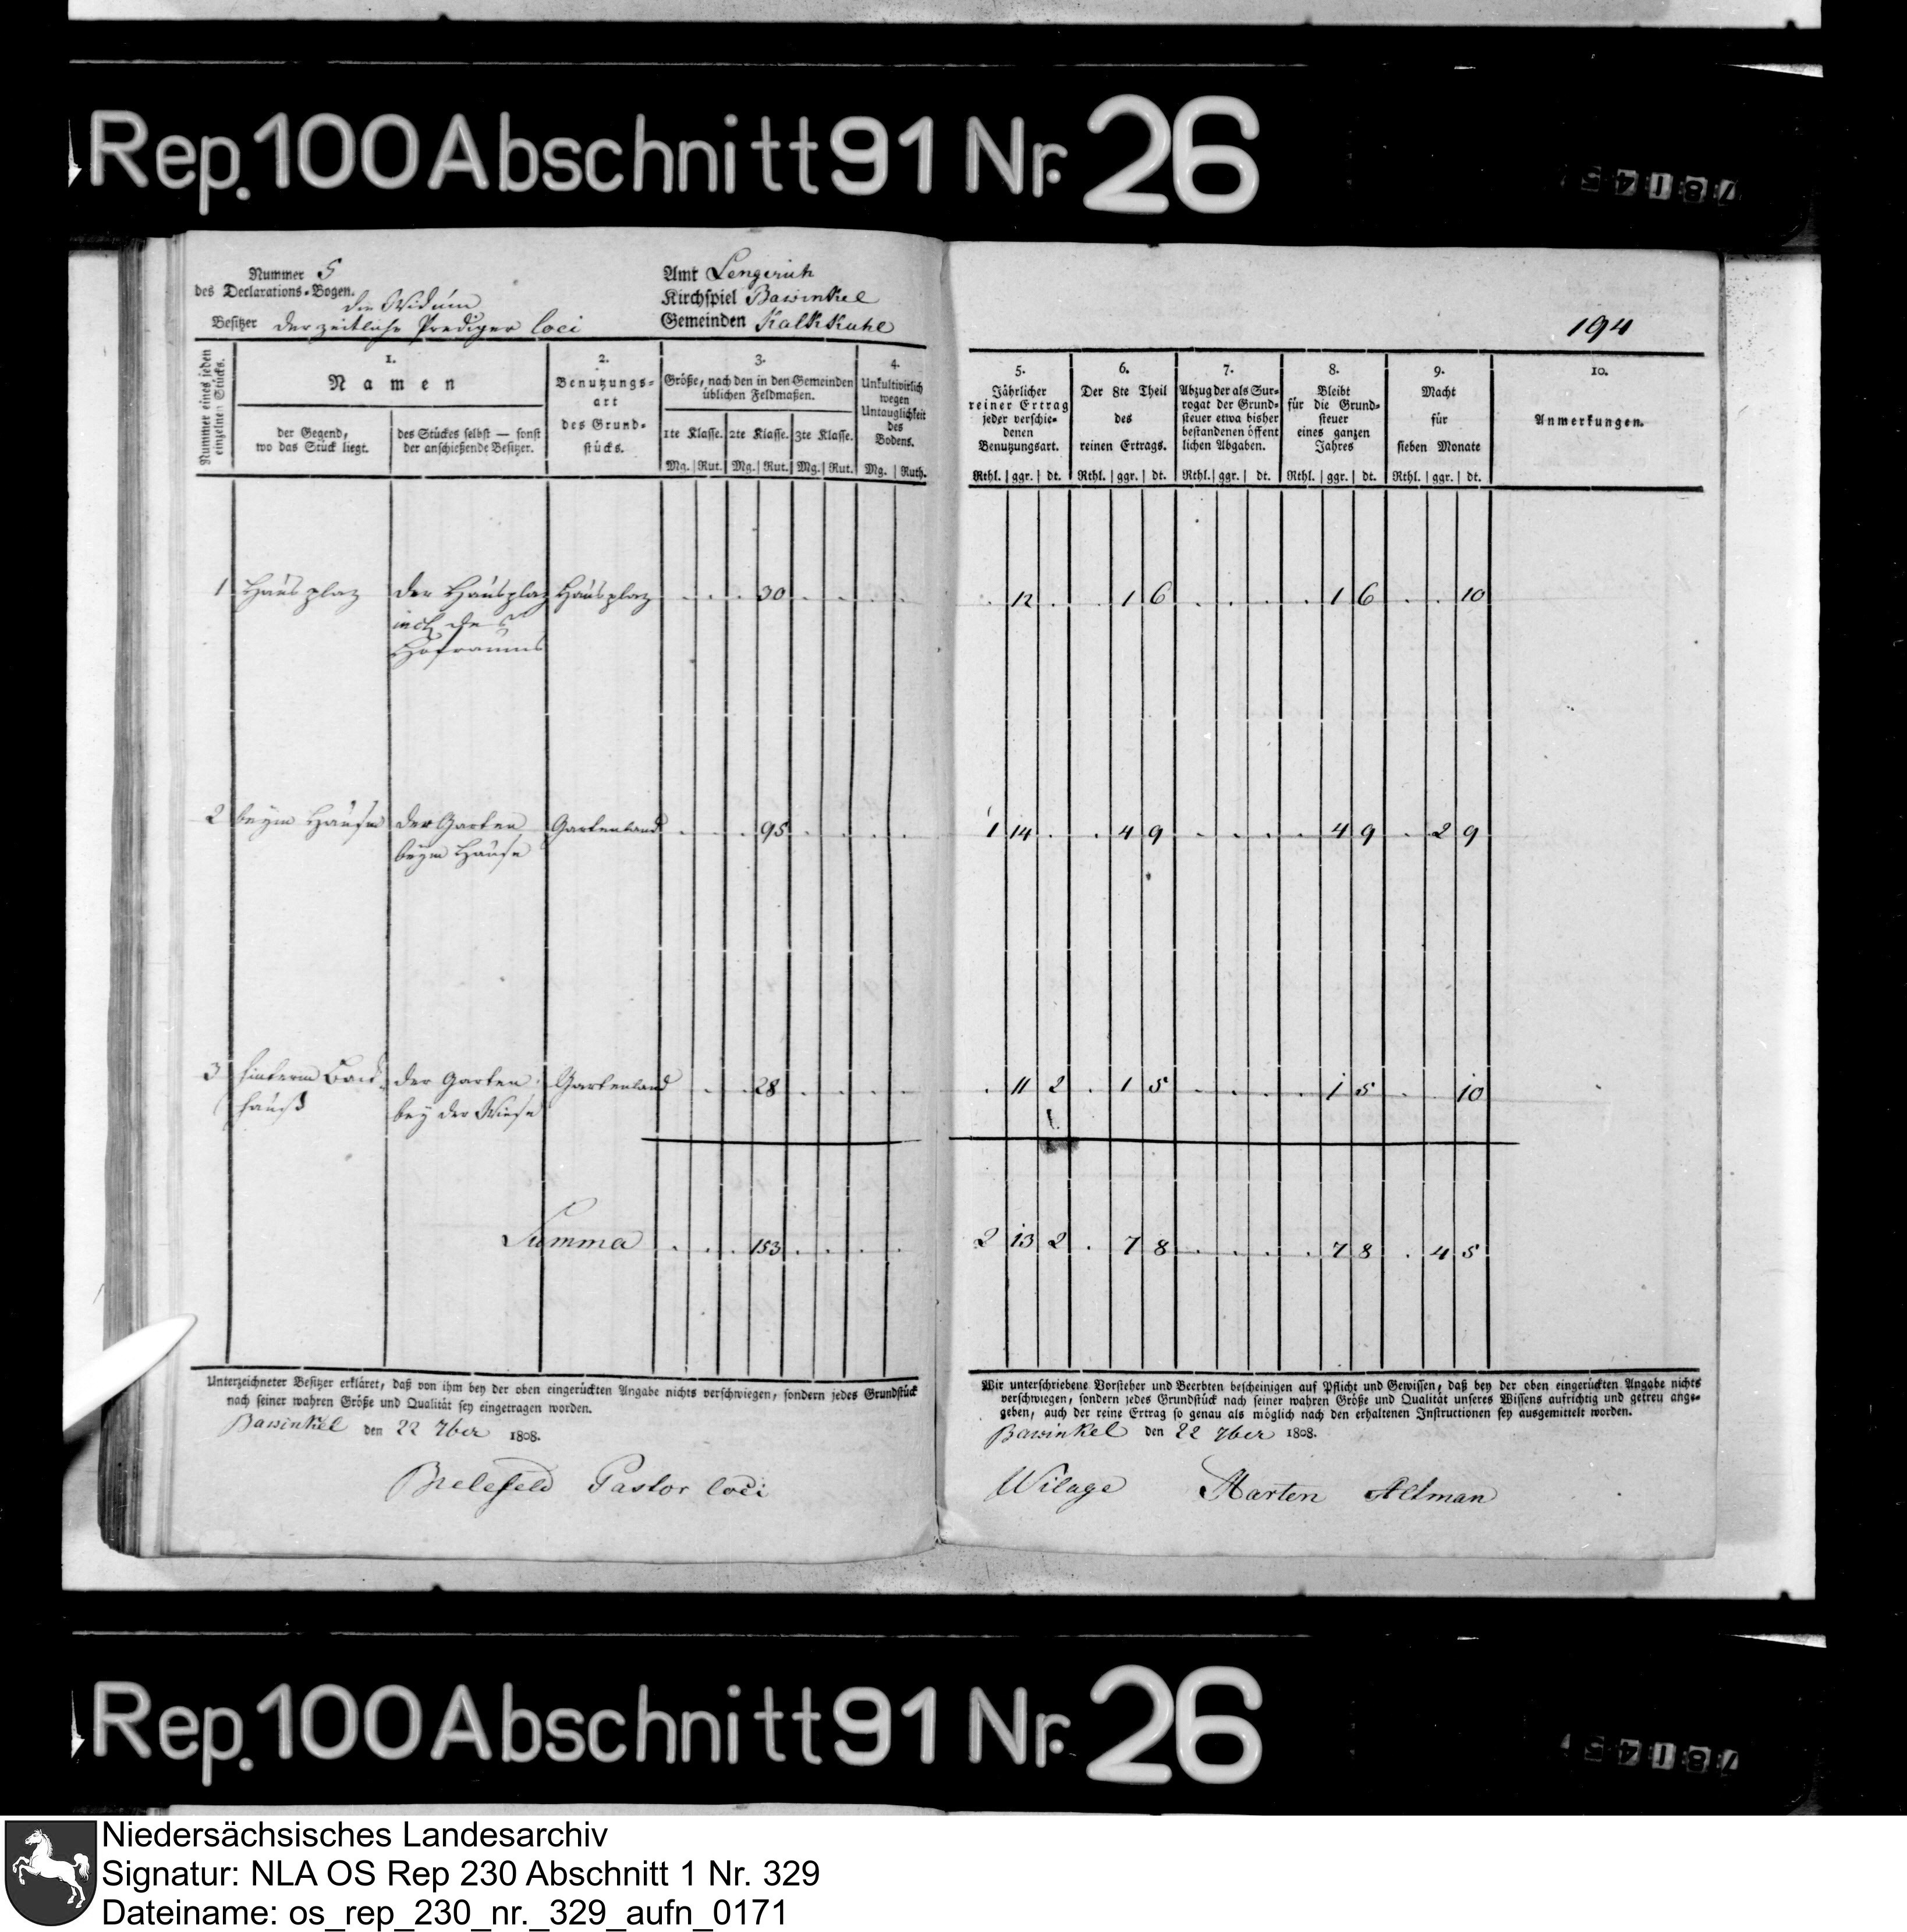 Rep. 100 Abschnitt 91 Nr. 26
Nummer 5
des Declarations-Bogen.
die Widum
Besitzer der zeitliche Prediger loci
Amt Lengerich
Kirchspiel Bawinkel
Gemeinden Kalkkuhle
194
Nummer eines jeden einzelnen Stücks.
1.
Namen
der Gegend,
wo das Stück liegt.
des Stückes selbst — sonst
der anschießende Besitzer.
2.
Benutzungs-
art
des Grund-
stücks.
3.
Größe, nach den in den Gemeinden
üblichen Feldmaßen.
1te Klasse. 2te Klasse. 3te Klasse.
Mg. Rut. Mg. Rut. Mg. Rut.
4.
Unkultivirlich
wegen
Untauglichkeit
des
Bodens.
Mg. Ruth.
5.
Jährlicher
reiner Ertrag
jeder verschie-
denen
Benutzungsart.
Rthl. ggr. dt.
6.
Der 8te Theil
des
reinen Ertrags.
Rthl. ggr. dt.
7.
Abzug der als Sur-
rogat der Grund-
steuer etwa bisher
bestandenen öffent
lichen Abgaben.
Rthl. ggr. dt.
8.
Bleibt
für die Grund-
steuer
eines ganzen
Jahres
Rthl. ggr. dt.
9.
Macht
für
sieben Monate
Rthl. ggr. dt.
10.
Anmerkungen.
1 Hausplaz der Hausplaz Hausplaz . . . 30 . . . . . 12 . . 1 6 . . . . 1 6 . . 10
des
Hofraums
2 beym Hause der Garten Gartenland . . . 95 . . . . 1 14 . . 4 9 . . . . 4 9 . 2 9
beym Hause
3 hinterm Back- der Garten Gartenland . . . 28 . . . . . 11 2 . 1 5 . . . . 1 5 . . 10
hauß bey der Wiese
Summa . . . 153 . . . . 2 13 2 . 7 8 . . . . 7 8 . 4 5
Unterzeichneter Besitzer erkläret, daß von ihm bey der oben eingerückten Angabe nichts verschwiegen, sondern jedes Grundstück
nach seiner wahren Größe und Qualität sey eingetragen worden.
Bawinkel den 22 7ber 1808.
Bielefeld Pastor loci
Wir unterschriebene Vorsteher und Beerbten bescheinigen auf Pflicht und Gewissen, daß bey der oben eingerückten Angabe nichts
verschwiegen, sondern jedes Grundstück nach seiner wahren Größe und Qualität unseres Wissens aufrichtig und getreu ange-
geben, auch der reine Ertrag so genau als möglich nach den erhaltenen Instructionen sey ausgemittelt worden.
Bawinkel den 22 7ber 1808.
Wilage Harten Altman
Rep. 100 Abschnitt 91 Nr. 26
Niedersächsisches Landesarchiv
Signatur: NLA OS Rep 230 Abschnitt 1 Nr. 329
Dateiname: os_rep_230_nr._329_aufn_0171